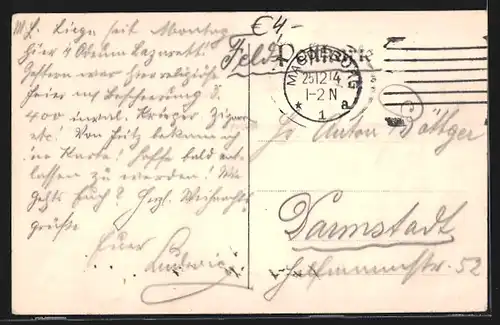 M. L. Liege seit Montag
hier i. Odeum Lazarett!
Gestern war hier religiöse
Feier nach Bescherung d.
400 inval. Krieger. Zigarr.
etc! Von Fritz bekam ich
'ne Karte! Hoffe bald ent-
lassen zu werden! Wie
gehts Euch? Herzl. Weihnachts-
grüße
Euer
Ludwig
€4,-
Feld
MAGDEBURG
25.12.14
1-2 N
* 1 a
Anton Böttger
Darmstadt
52